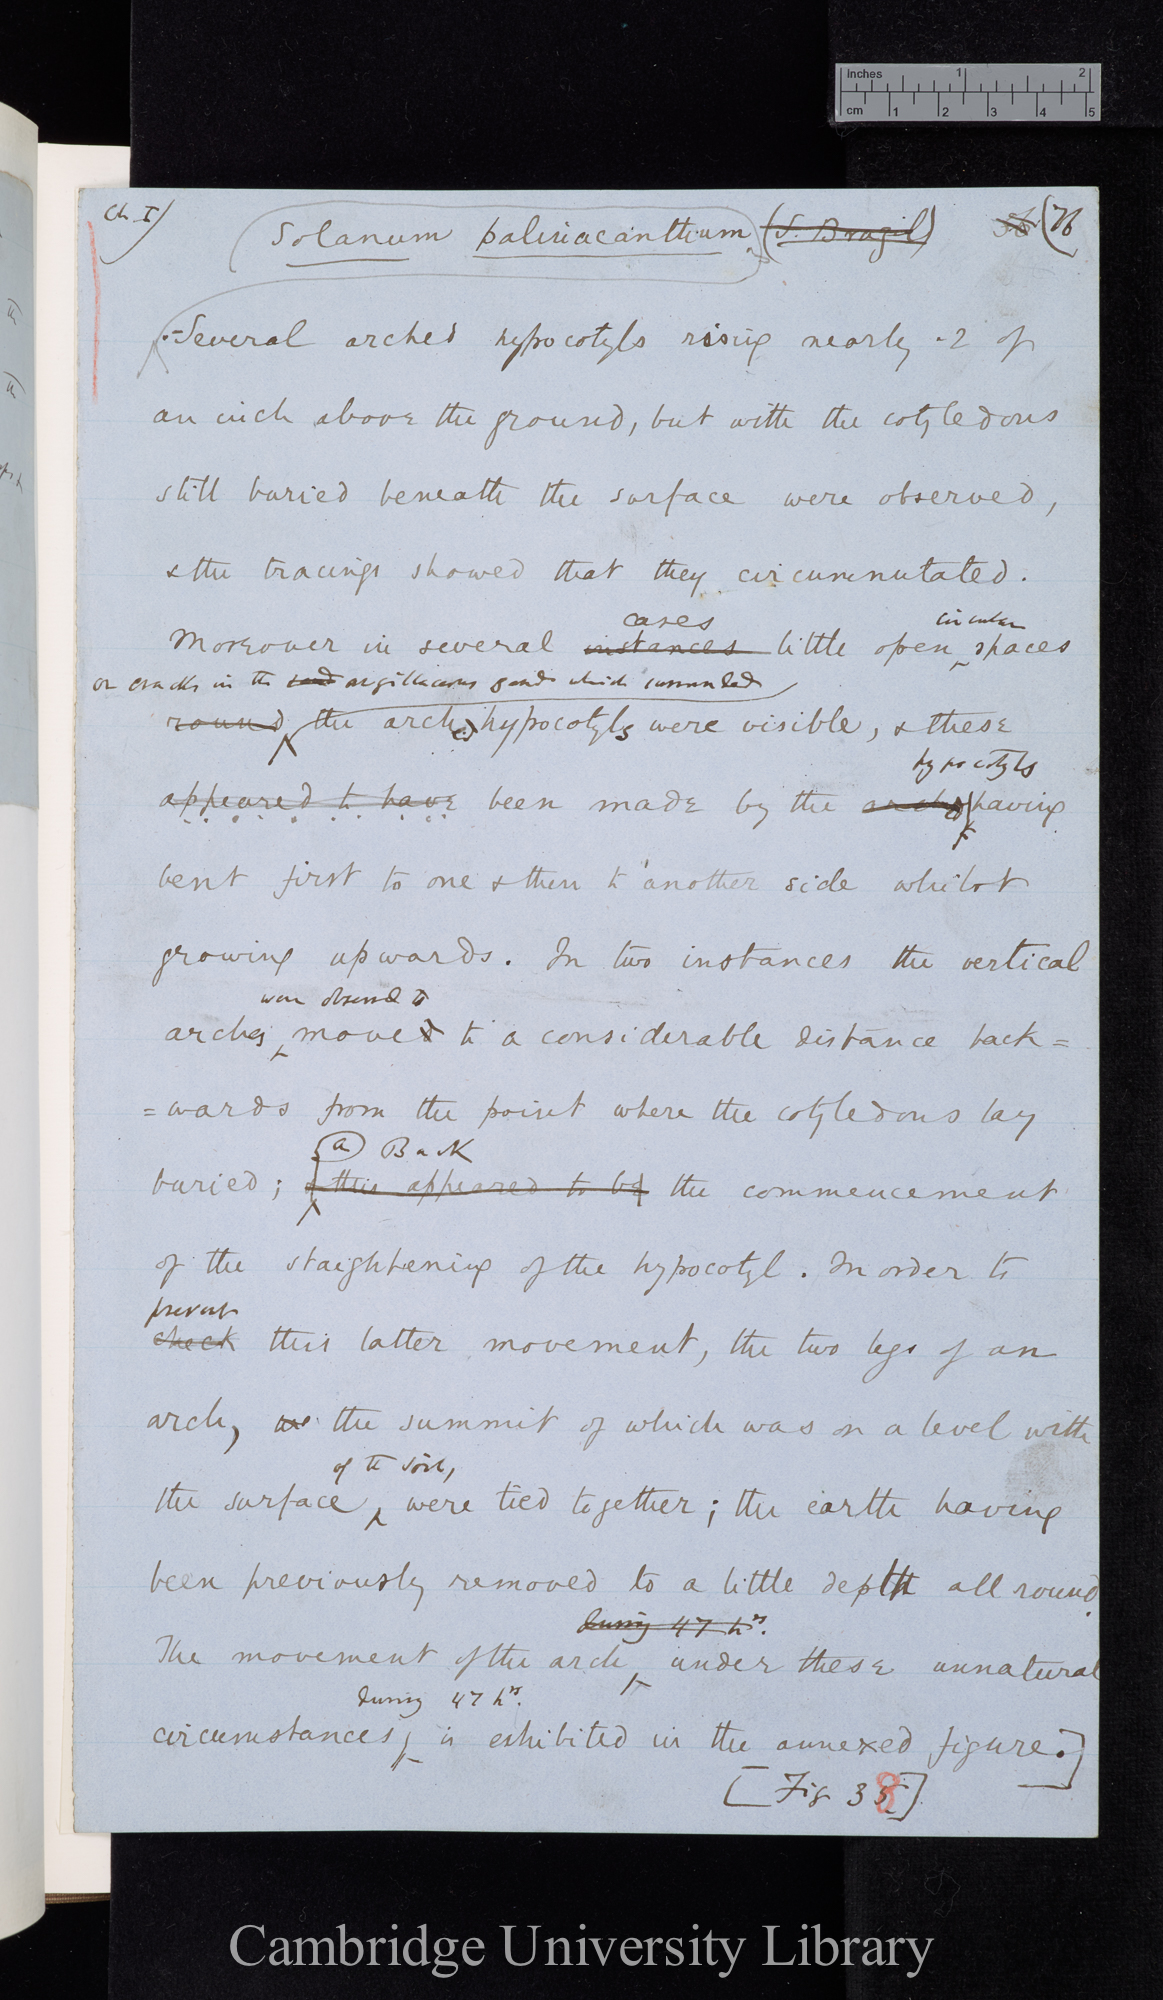 Inches 1 2
cm 1 2 3 4 5
Ch. I)
Solanum palinacanthum (S. Brazil) (76
Several arched hypocotyls rising nearly .2 of
an inch above the ground, but with the cotyledons
still buried beneath the surface were observed,
& the tracings showed that they circumnutated.
cases circular
Moreover in several instances little open spaces
or cracks in the sand argillaceous sand which surrounded
round the arched hypocotyls were visible, & these
hypocotyls
appeared to have been made by the arches having
bent first to one & then to another side whilst
growing upwards. In two instances the vertical
were observed to
arches moved to a considerable distance back=
=wards from the point where the cotyledons lay
(a) Back
buried; & this appeared to be the commencement
of the staightening of the hypocotyl. In order to
prevent
check this latter movement, the two legs of an
arch, the summit of which was on a level with
of the soil,
the surface were tied together; the earth having
been previously removed to a little depth all round.
during 47 hrs.
The movement of the arch under these unnatural
during 47 hrs.
circumstances, is exhibited in the annexed figure.]
[Fig 38]
Cambridge University Library